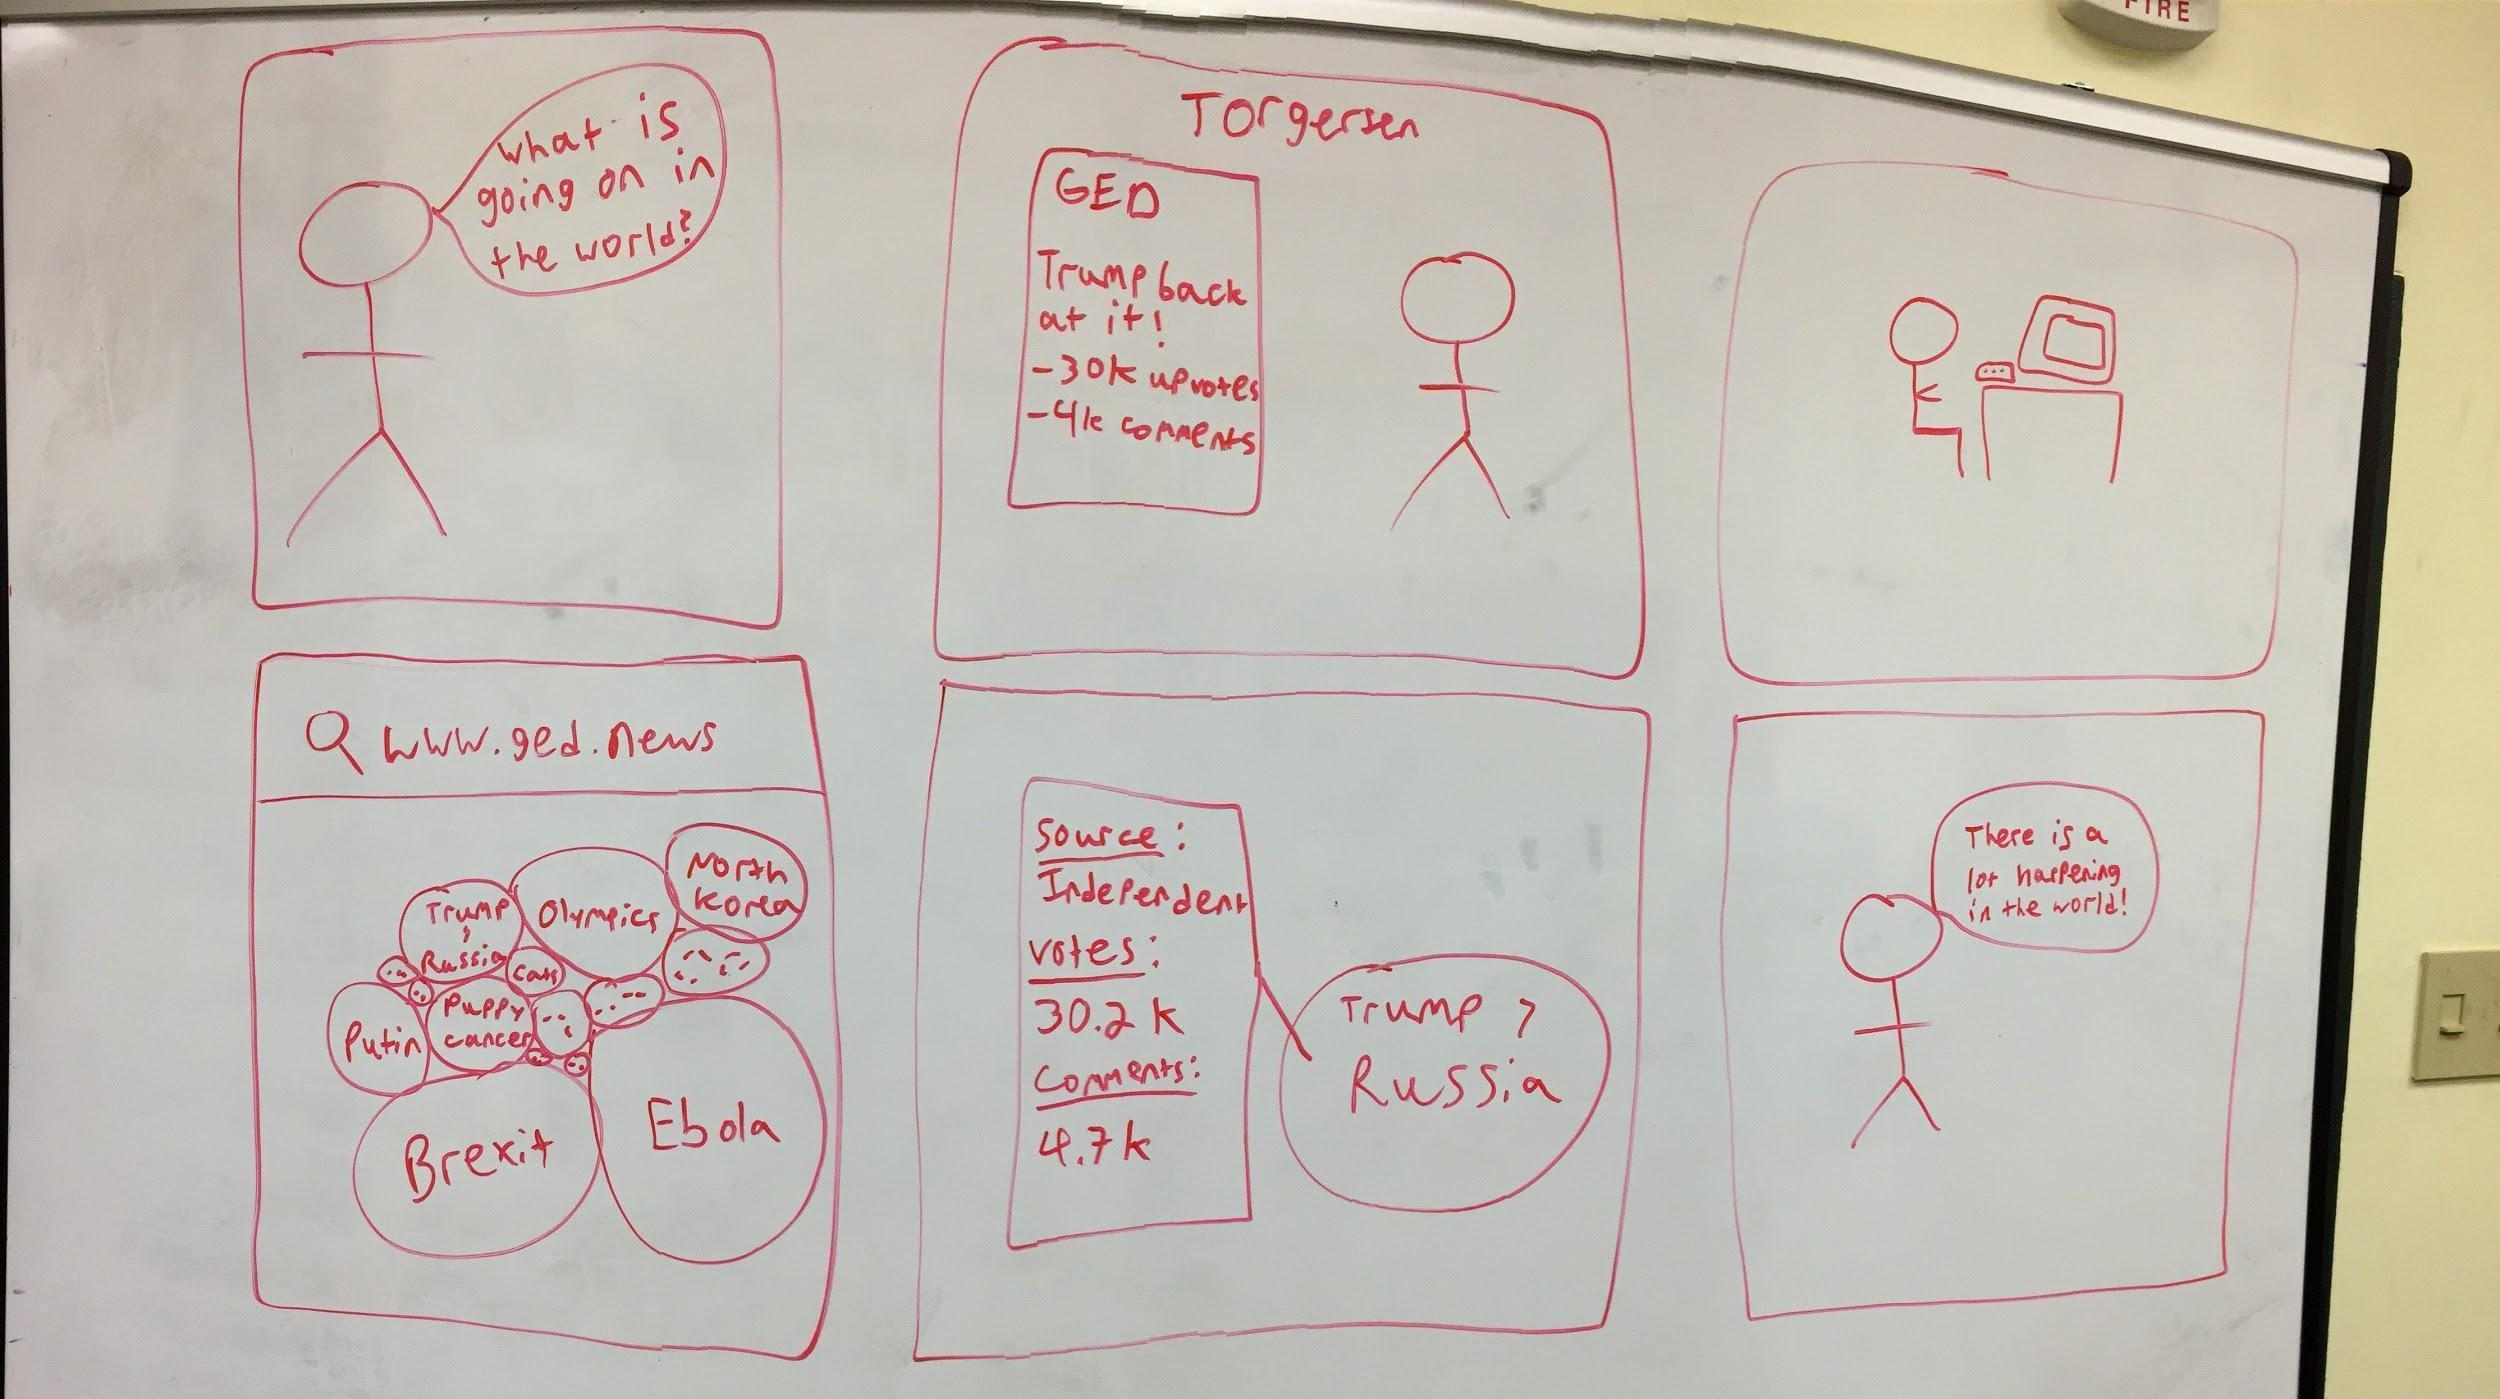 FIRE
what is
going on in
the world?
Torgersen
GED
Trump back
at it!
-30k upvotes
-4k comments
www.ged.news
North
Korea
Trump
Olympics
Russia
Cats
Puppy
cancer
Putin
Brexit
Ebola
Source:
Independent
votes:
30.2k
Comments:
4.7k
Trump >
Russia
There is a
lot happening
in the world!